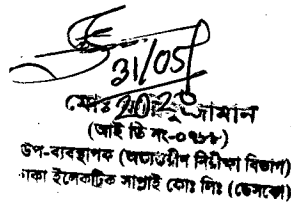 31/05
2020
মোঃ জামান
(আই ডি নং-০৭৮৮)
উপ-ব্যবস্থাপক (অভ্যন্তরীন নিরীক্ষা বিভাগ)
ঢাকা ইলেকট্রিক সাপ্লাই কোঃ লিঃ (ডেসকো)